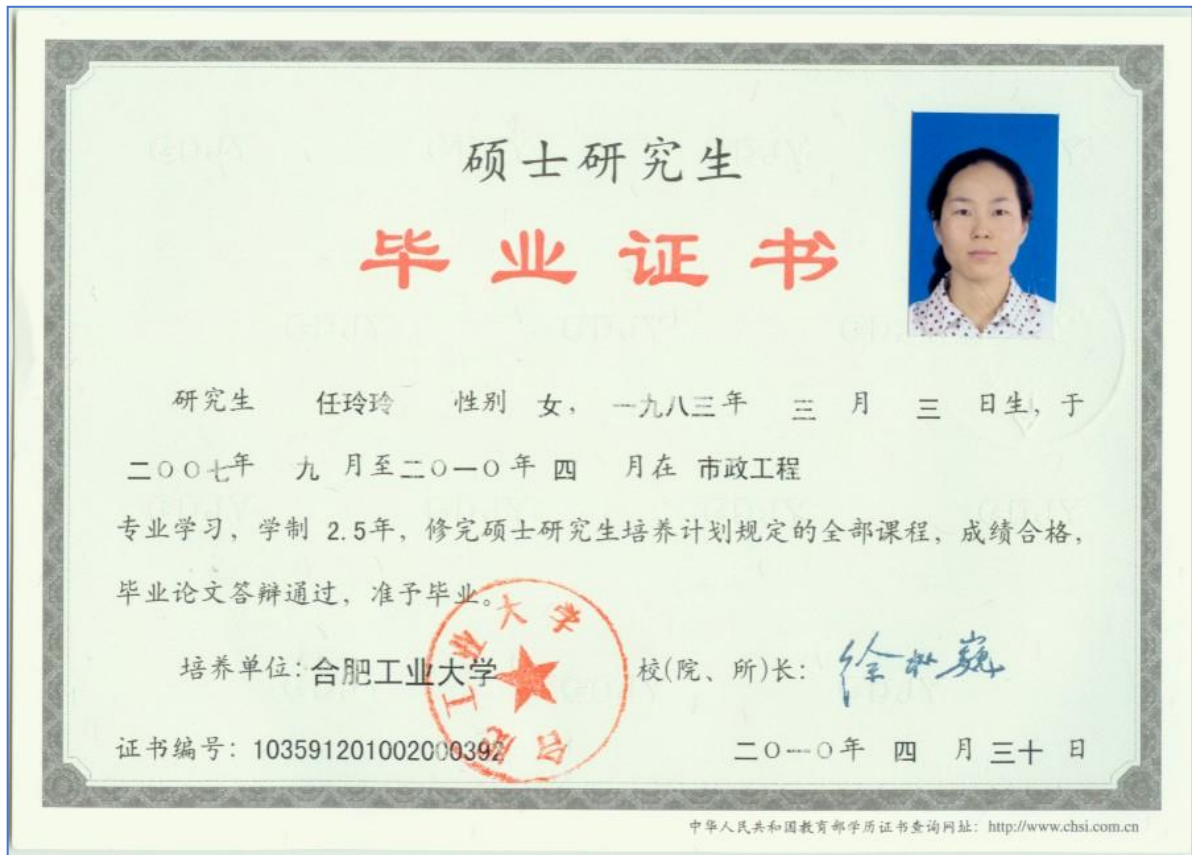 硕士研究生
毕业证书
研究生 任玲玲 性别 女, 一九八三年 三 月 三 日生, 于
二〇〇七年 九 月至二〇一〇年 四 月在 市政工程
专业学习, 学制 2.5年, 修完硕士研究生培养计划规定的全部课程, 成绩合格,
毕业论文答辩通过, 准予毕业。
合肥工业大学
培养单位: 合肥工业大学 校(院、所)长: 徐枞巍
证书编号: 103591201002000392 二〇一〇年 四 月 三十 日
中华人民共和国教育部学历证书查询网址: http://www.chsi.com.cn